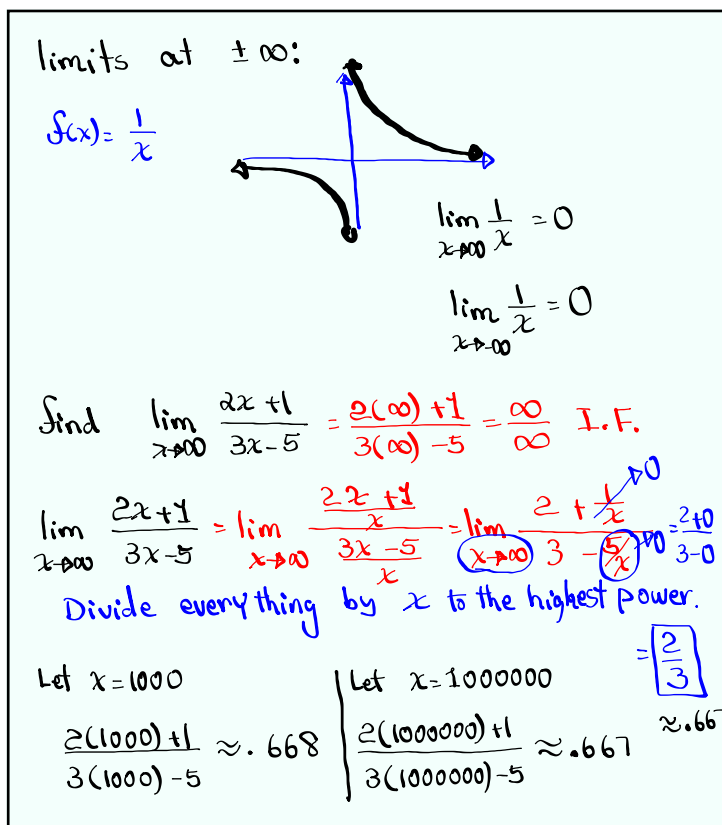 limits at ± ∞:
f(x) = 1/x
lim x→∞ 1/x = 0
lim x→-∞ 1/x = 0
find lim x→∞ (2x + 1)/(3x - 5) = (2(∞) + 1)/(3(∞) - 5) = ∞/∞ I.F.
lim x→∞ (2x + 1)/(3x - 5) = lim x→∞ ((2x + 1)/x)/((3x - 5)/x) = lim x→∞ (2 + 1/x →0)/(3 - 5/x →0) = (2+0)/(3-0)
Divide everything by x to the highest power.
= 2/3
≈ .667
Let x = 1000
(2(1000) + 1)/(3(1000) - 5) ≈ .668
Let x = 1000000
(2(1000000) + 1)/(3(1000000) - 5) ≈ .667